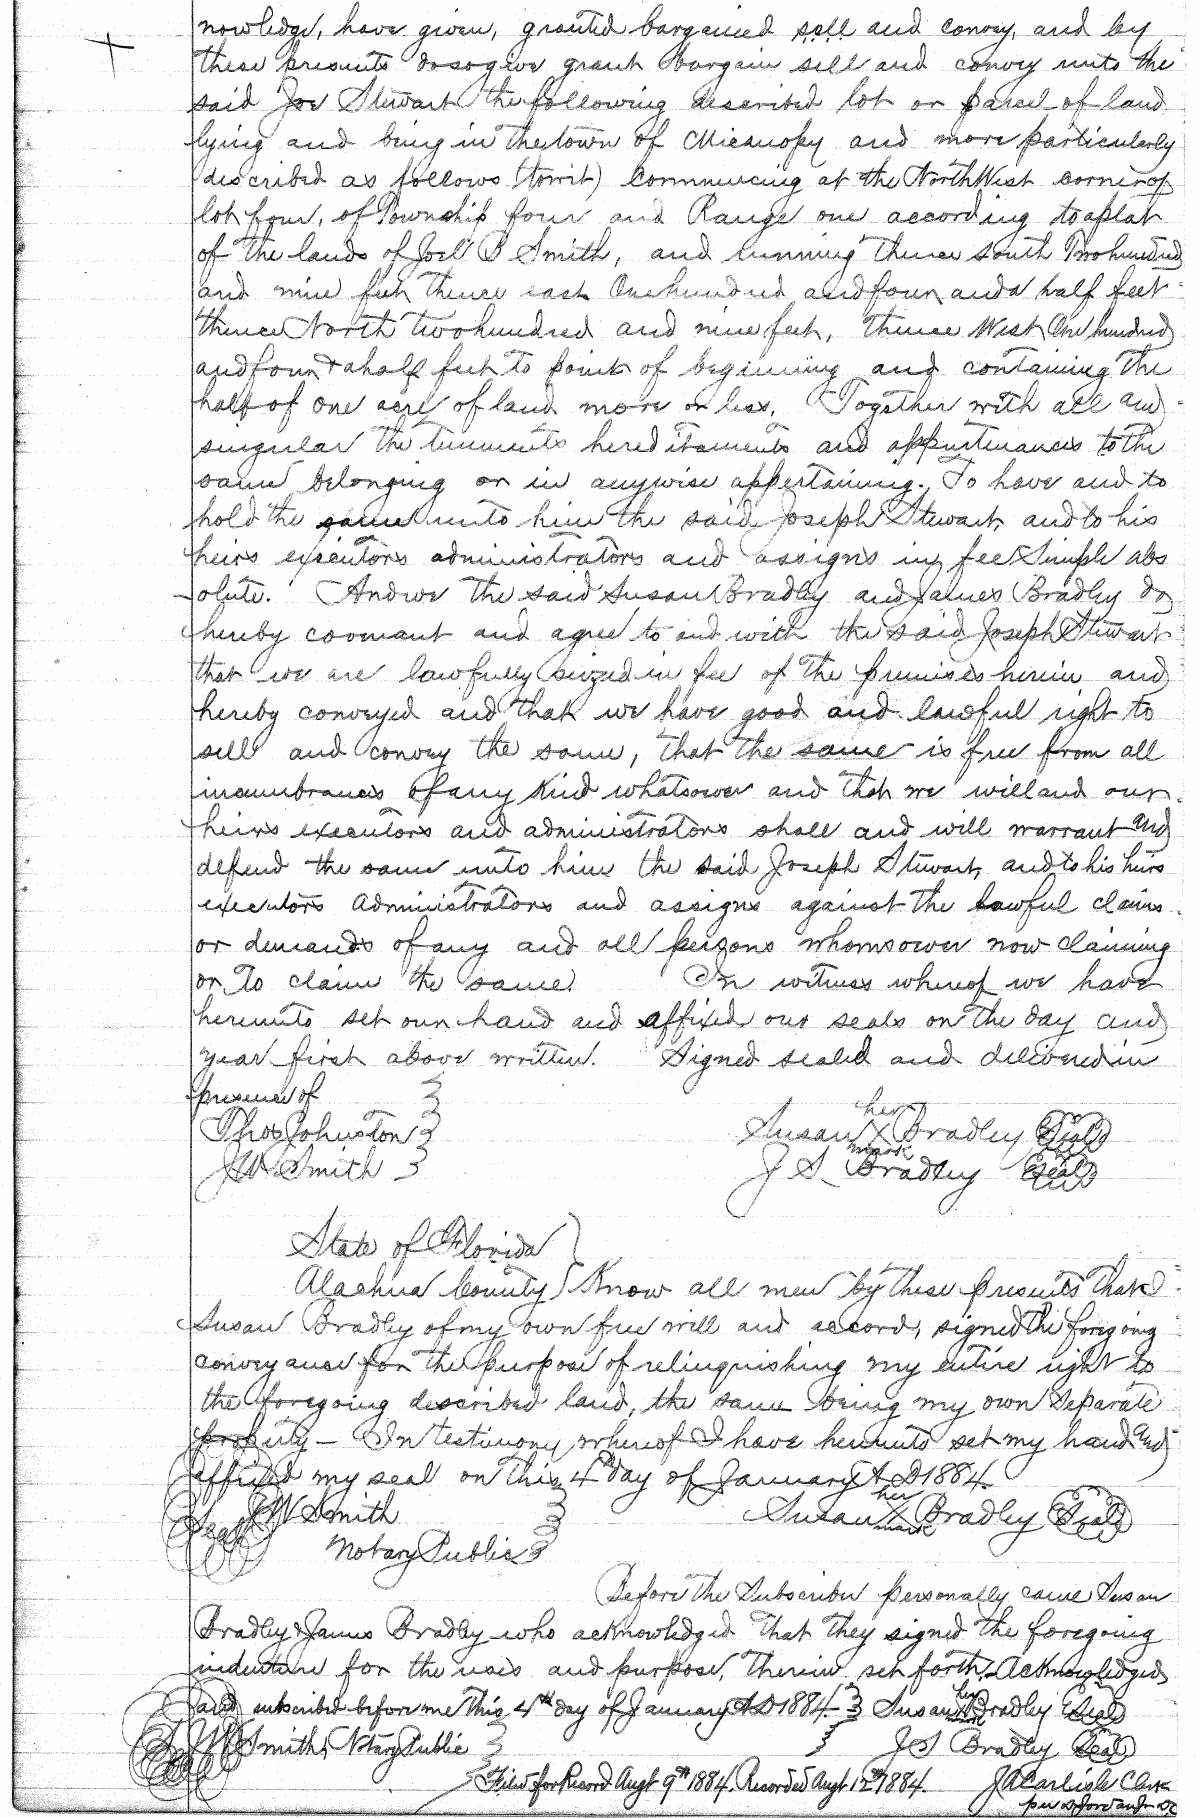 nowledge, have given, granted bargained sell and convey, and by
these presents do so give grant bargain sell and convey unto the
said Joe Stewart the following described lot or parcel of land
lying and being in the town of Micanopy and more particularly
described as follows (towit) Commencing at the North West corner of
lot four, of Township four and Range one according to a plat
of the lands of Joel B Smith, and running thence south Two hundred
and nine feet thence east One hundred and four and a half feet
thence North two hundred and nine feet, thence West One hundred
and four & a half feet to point of beginning and containing the
half of one acre of land more or less. Together with all and
singular the tenements hereditaments and appurtenances to the
same belonging or in anywise appertaining. To have and to
hold the same unto him the said Joseph Stewart, and to his
heirs executors administrators and assigns in fee Simple abs
olute. And we the said Susan Bradley and James Bradley do
hereby covenant and agree to and with the said Joseph Stewart
that we are lawfully seized in fee of the premises herein and
hereby conveyed and that we have good and lawful right to
sell and convey the same, that the same is free from all
incumbrances of any kind whatsoever and that we will and our
heirs executors and administrators shall and will warrant and
defend the same unto him the said Joseph Stewart, and to his heirs
executors Administrators and assigns against the lawful claims
or demands of any and all persons whomsoever now claiming
or To claim the same. In witness whereof we have
hereunto set our hand and affixed our seals on the day and
year first above written. Signed sealed and delivered in
presence of
Thos Johnston
her
Susan X Bradley Seal
mark
J W Smith
J S Bradley Seal
State of Florida
Alachua County Know all men by these Presents that I
Susan Bradley of my own free will and accord, signed the foregoing
conveyance for the purpose of relinquishing my entire right to
the foregoing described land, the same being my own Separate
property – In testimony whereof I have hereunto set my hand and
affixed my seal on this 4th day of January A D 1884.
Seal J W Smith
Notary Public
her
Susan X Bradley Seal
mark
Before the Subscriber personally came Susan
Bradley & James Bradley who acknowledged that they signed the foregoing
indenture for the uses and purpose, therein set forth. Acknowledged
and subscribed before me this 4th day of January A D 1884
her
Susan X Bradley Seal
mark
J W Smith, Notary Public
J S Bradley Seal
Filed for Record Augt 9th 1884. Recorded Augt 12th 1884.
J A Carlisle Clerk
per